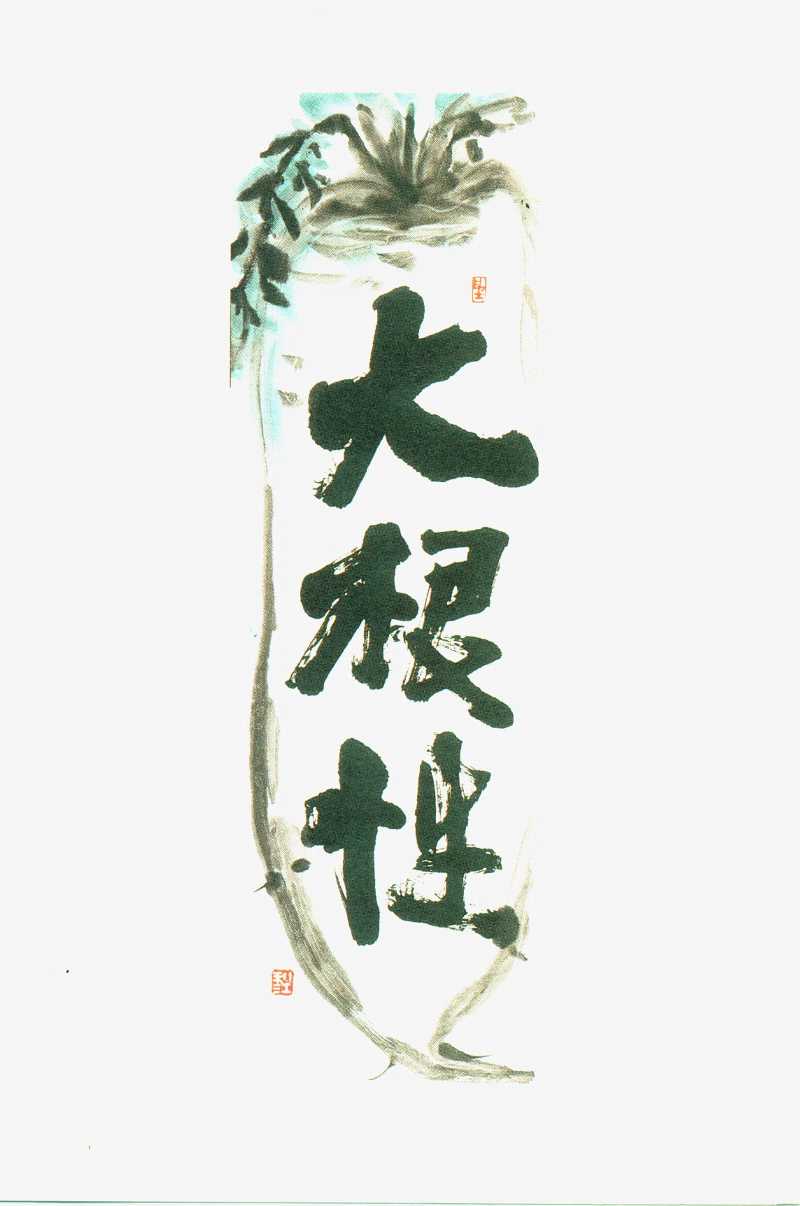 大根性